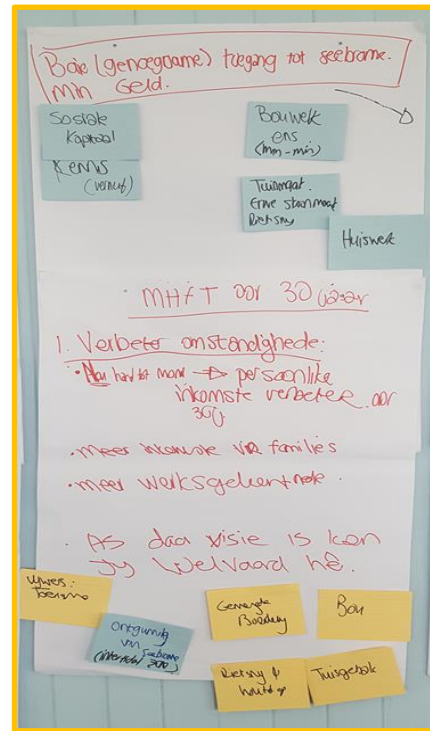 Baie (genoegsame) toegang tot seebrame.
Min Geld.
Sosiale
Kapitaal
Kennis
(vernuf)
Bouwerk
ens
(min-min)
Tuismaak.
Erwe skoonmaak
Rietsny
Huiswerk
MHFT oor 30 jaar
1. Verbeter omstandighede:
• Nou hand tot mond → persoonlike
inkomste verbeter oor
30j
• meer inkomste vir families
• meer werksgeleenthede.
• As daar visie is kan
jy welvaard hê.
Toerisme
Ontginning
van Seebrame
(intertidal zone)
Gemengde
Boerdery
Bou
Rietsny &
Tuisgebak